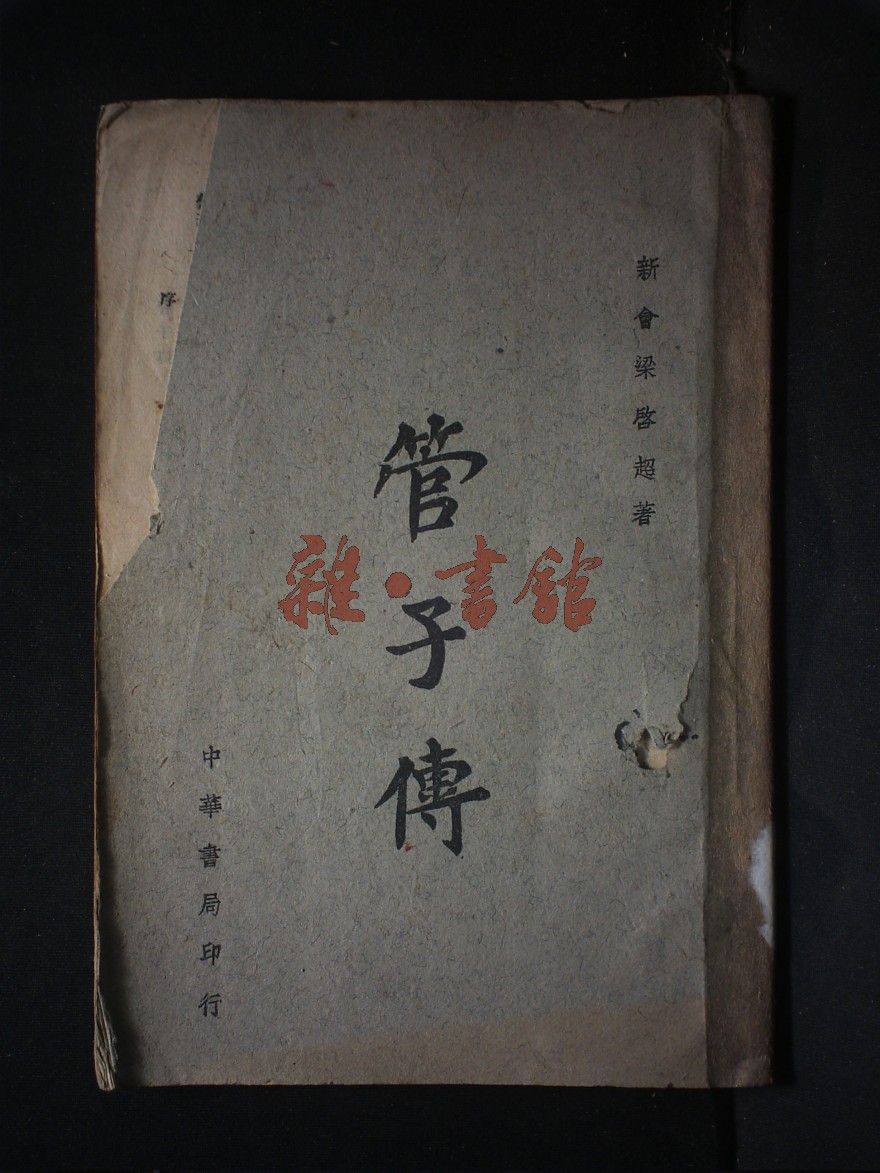 新會梁啓超著
管子傳
中華書局印行
序
雜·書館